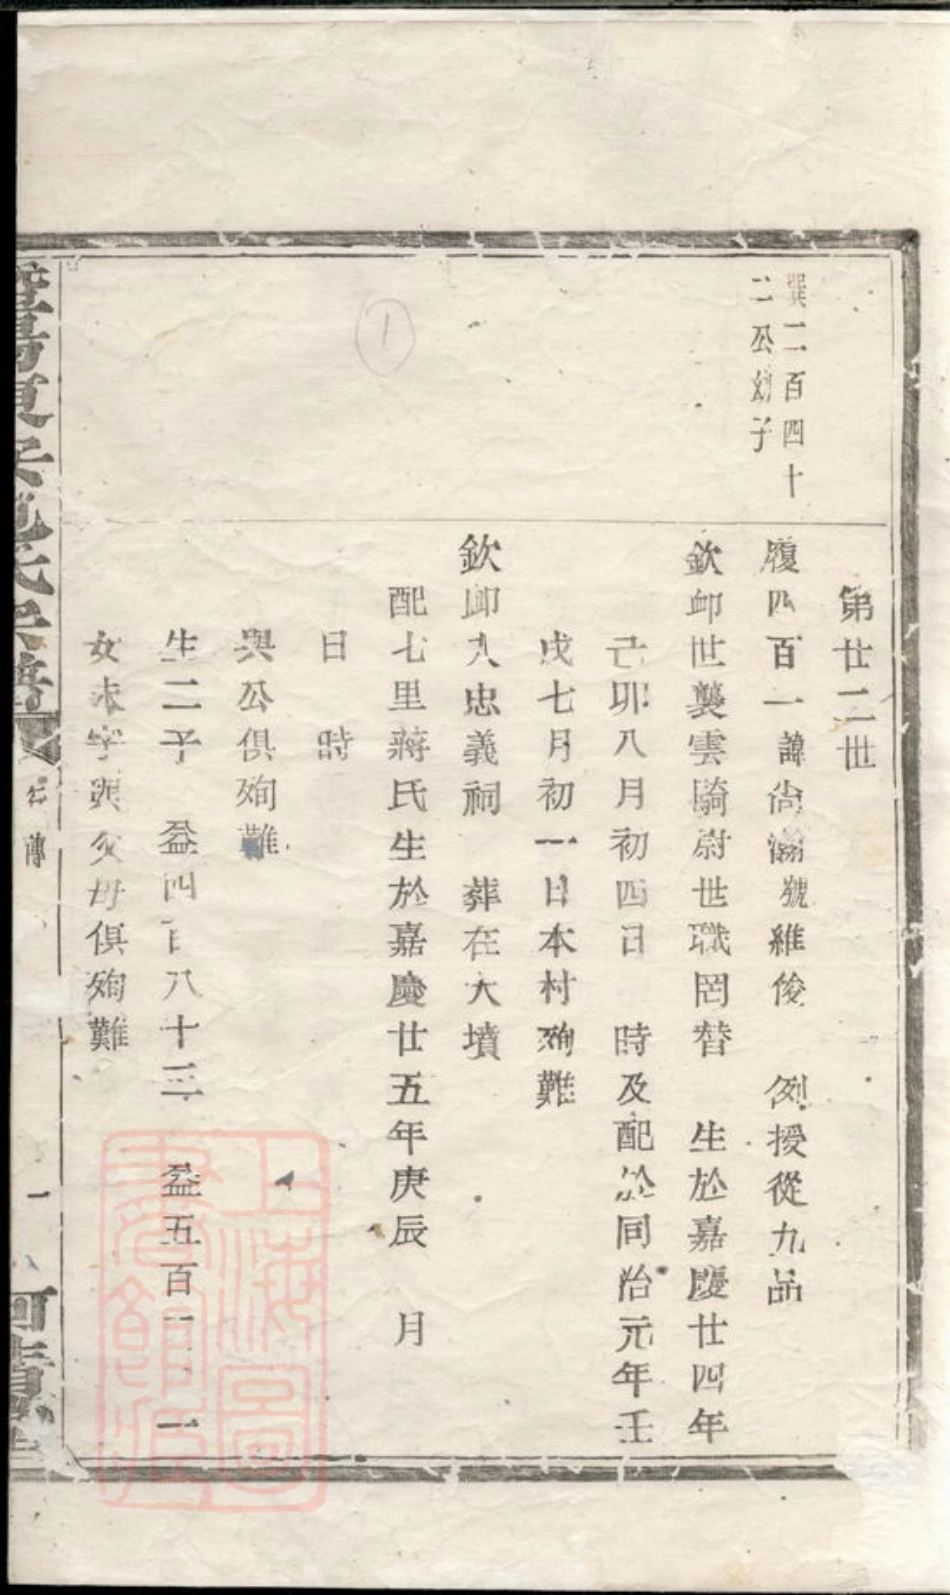 第廿二世
巽二百四十
二公幼子
履四百一諱尙瀚號維俊 例授從九品
欽卹世襲雲騎尉世職罔替 生於嘉慶廿四年
己卯八月初四日 時及配於同治元年壬
戌七月初一日本村殉難
欽卹入忠義祠 葬在大墳
配七里蔣氏生於嘉慶廿五年庚辰 月
日 時
與公俱殉難
生二子 益四百八十三 益五百一 一
女未字與父母俱殉難
傳
一
上海圖
書館藏